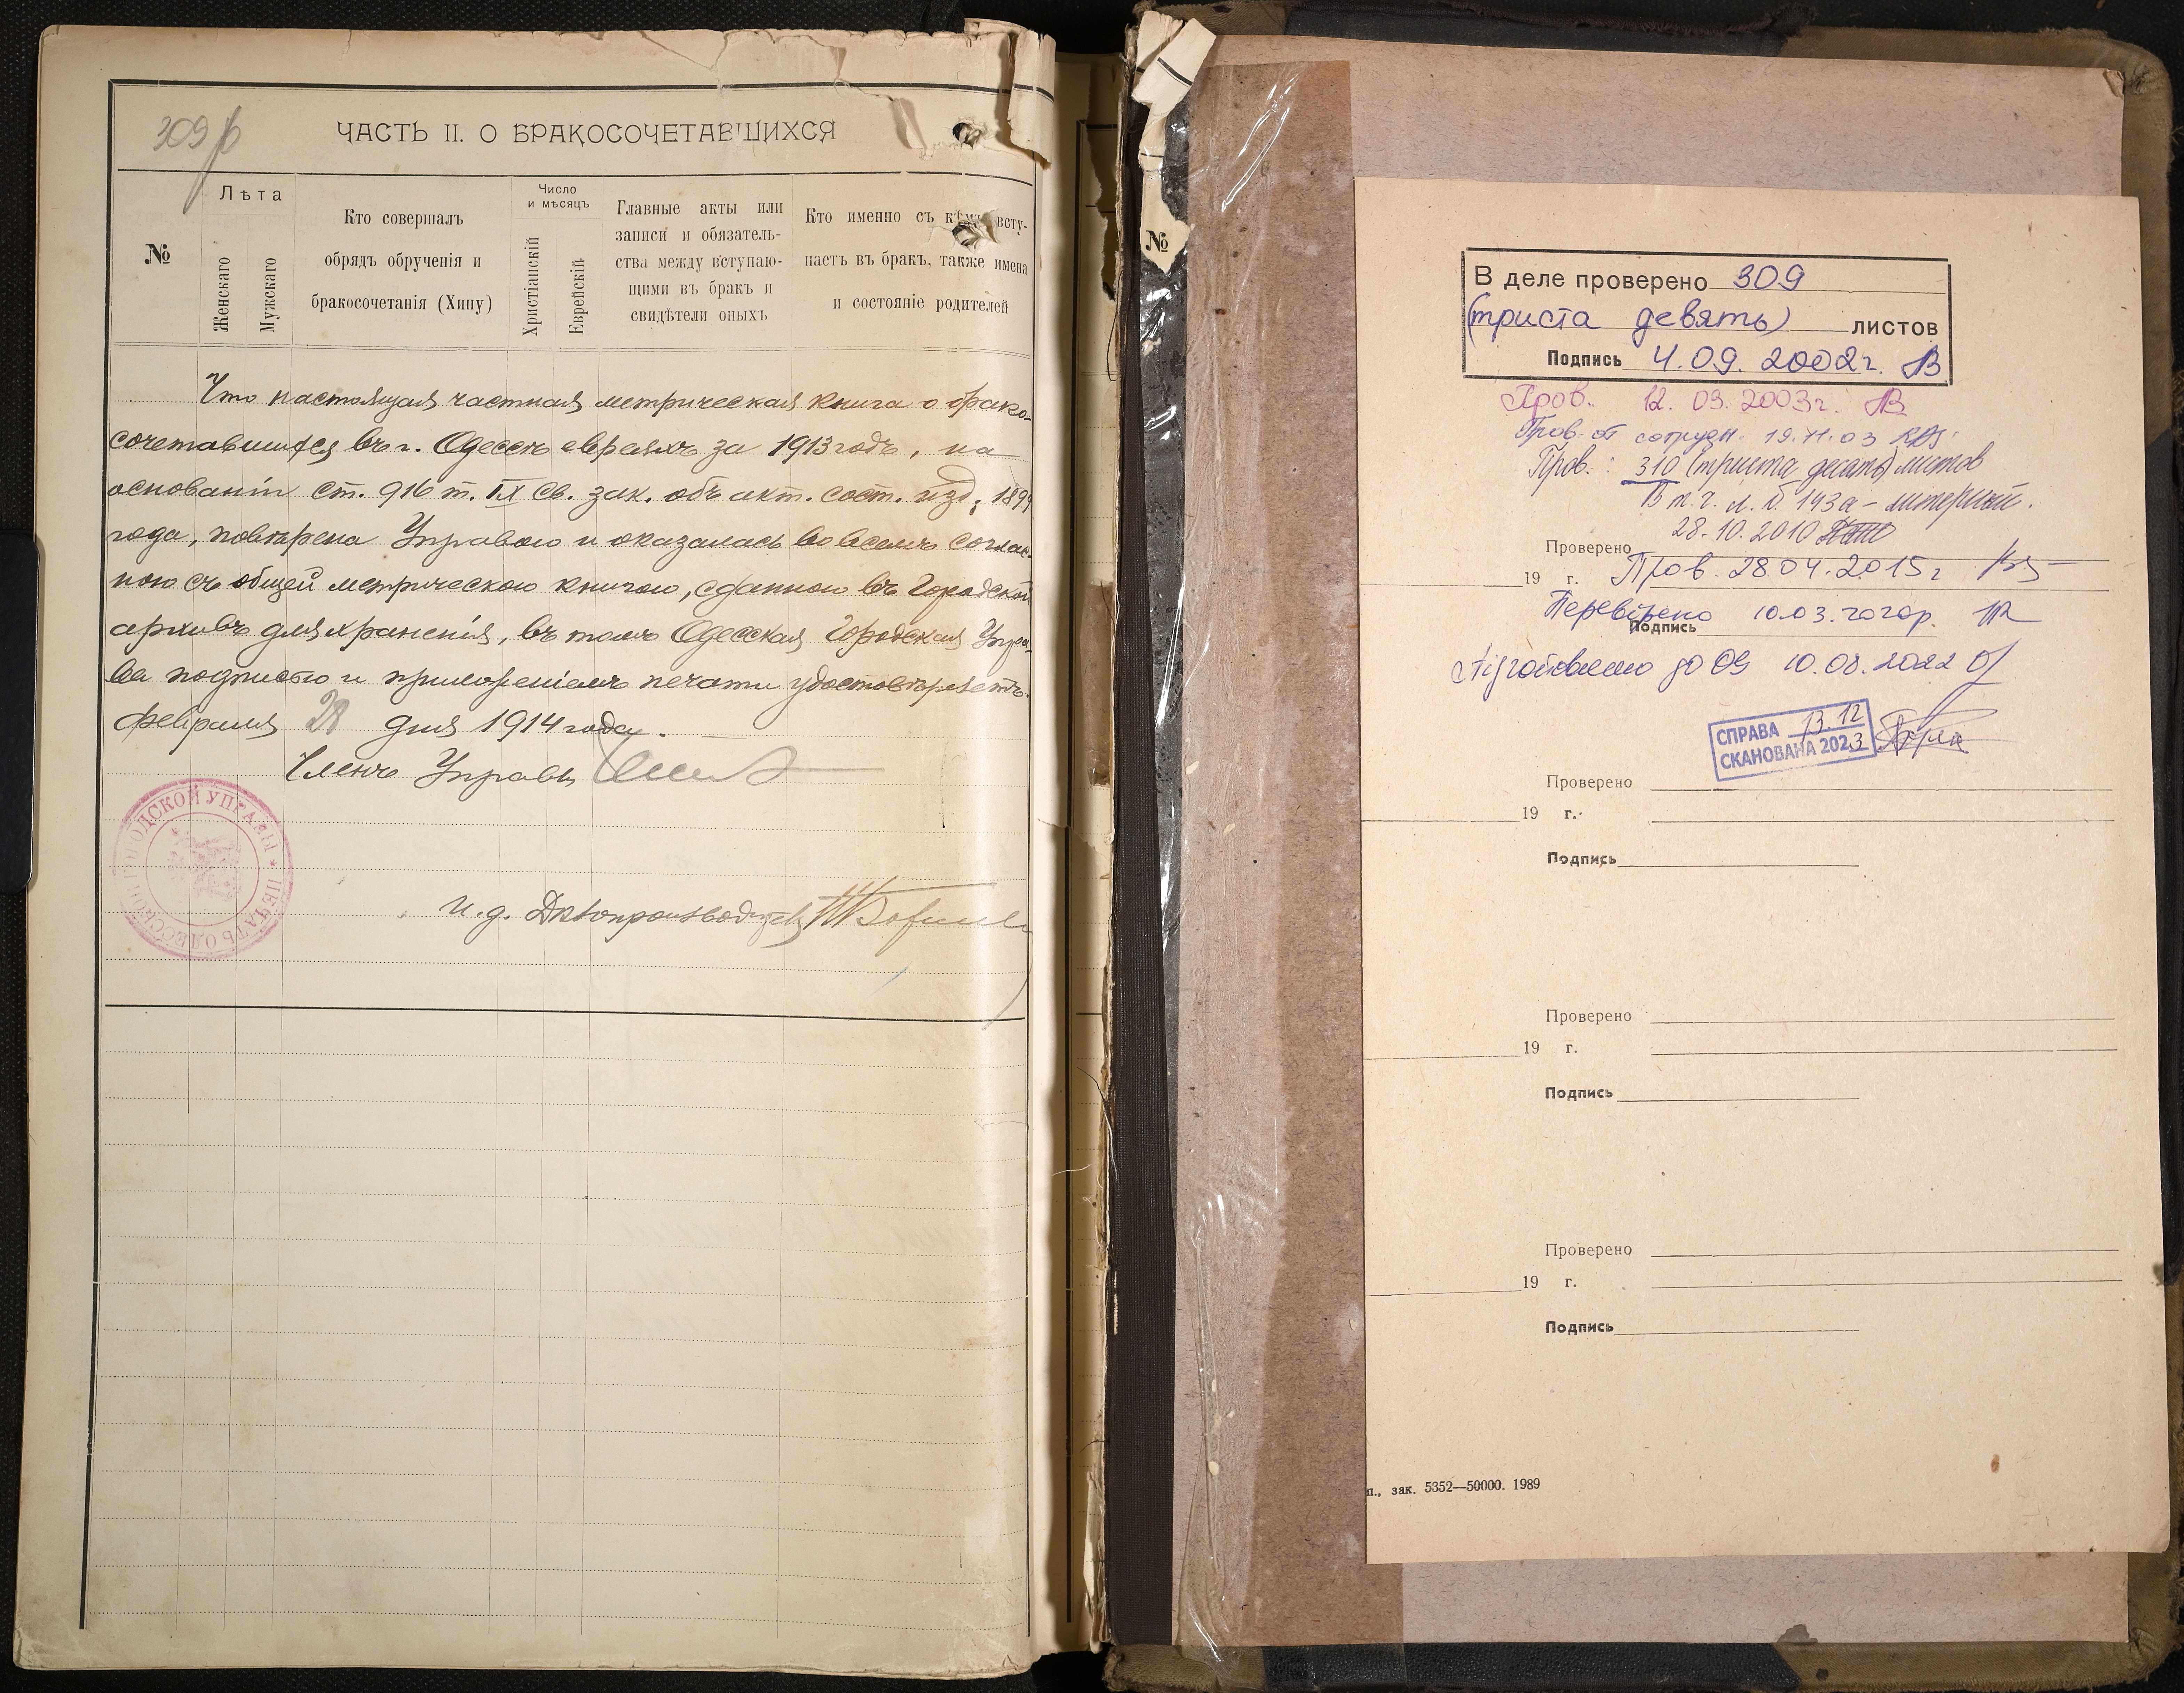 309
ЧАСТЬ II. О БРАКОСОЧЕТАВШИХСЯ
№
Лѣта
Женскаго
Мужскаго
Кто совершалъ
обрядъ обрученія и
бракосочетанія (Хипу)
Число
и мѣсяцъ
Христіанскій
Еврейскій
Главные акты или
записи и обязатель-
ства между вступаю-
щими въ бракъ и
свидѣтели оныхъ
Кто именно съ кѣмъ всту-
паетъ въ бракъ, также имена
и состояніе родителей
Что настоящая частная метрическая книга о брако-
сочетавшихся въ г. Одессѣ евреяхъ за 1913 годъ, на
основаніи ст. 916 т. IX св. зак. объ акт. сост. изд. 1899
года, повѣрена Управою и оказалась во всемъ соглас-
ною съ общей метрическою книгою, сданною въ Городской
архивъ для храненія, въ томъ Одесская Городская Упра-
ва подписью и приложеніемъ печати удостовѣряетъ.
Февраля 28 дня 1914 года.
Членъ Управы
ПЕЧАТЬ ОДЕССКОЙ ГОРОДСКОЙ УПРАВЫ *
И. д. Дѣлопроизводителя
№
В деле проверено 309
(триста девять) листов
Подпись 4.09.2002г.
Пров. 12.03.2003г.
Пров. от сотрудн. 19.11.03
Пров.: 310 (триста десять) листов
В т.ч. л. № 143а - литерный.
28.10.2010
Проверено
19 г. Пров. 28.04.2015г
Перевірено 10.03.
Подпись
Підготовлено до 10.08.2022
СПРАВА 13.12
СКАНОВАНА 2023
Проверено
19 г.
Подпись
Проверено
19 г.
Подпись
Проверено
19 г.
Подпись
п., зак. 5352—50000. 1989